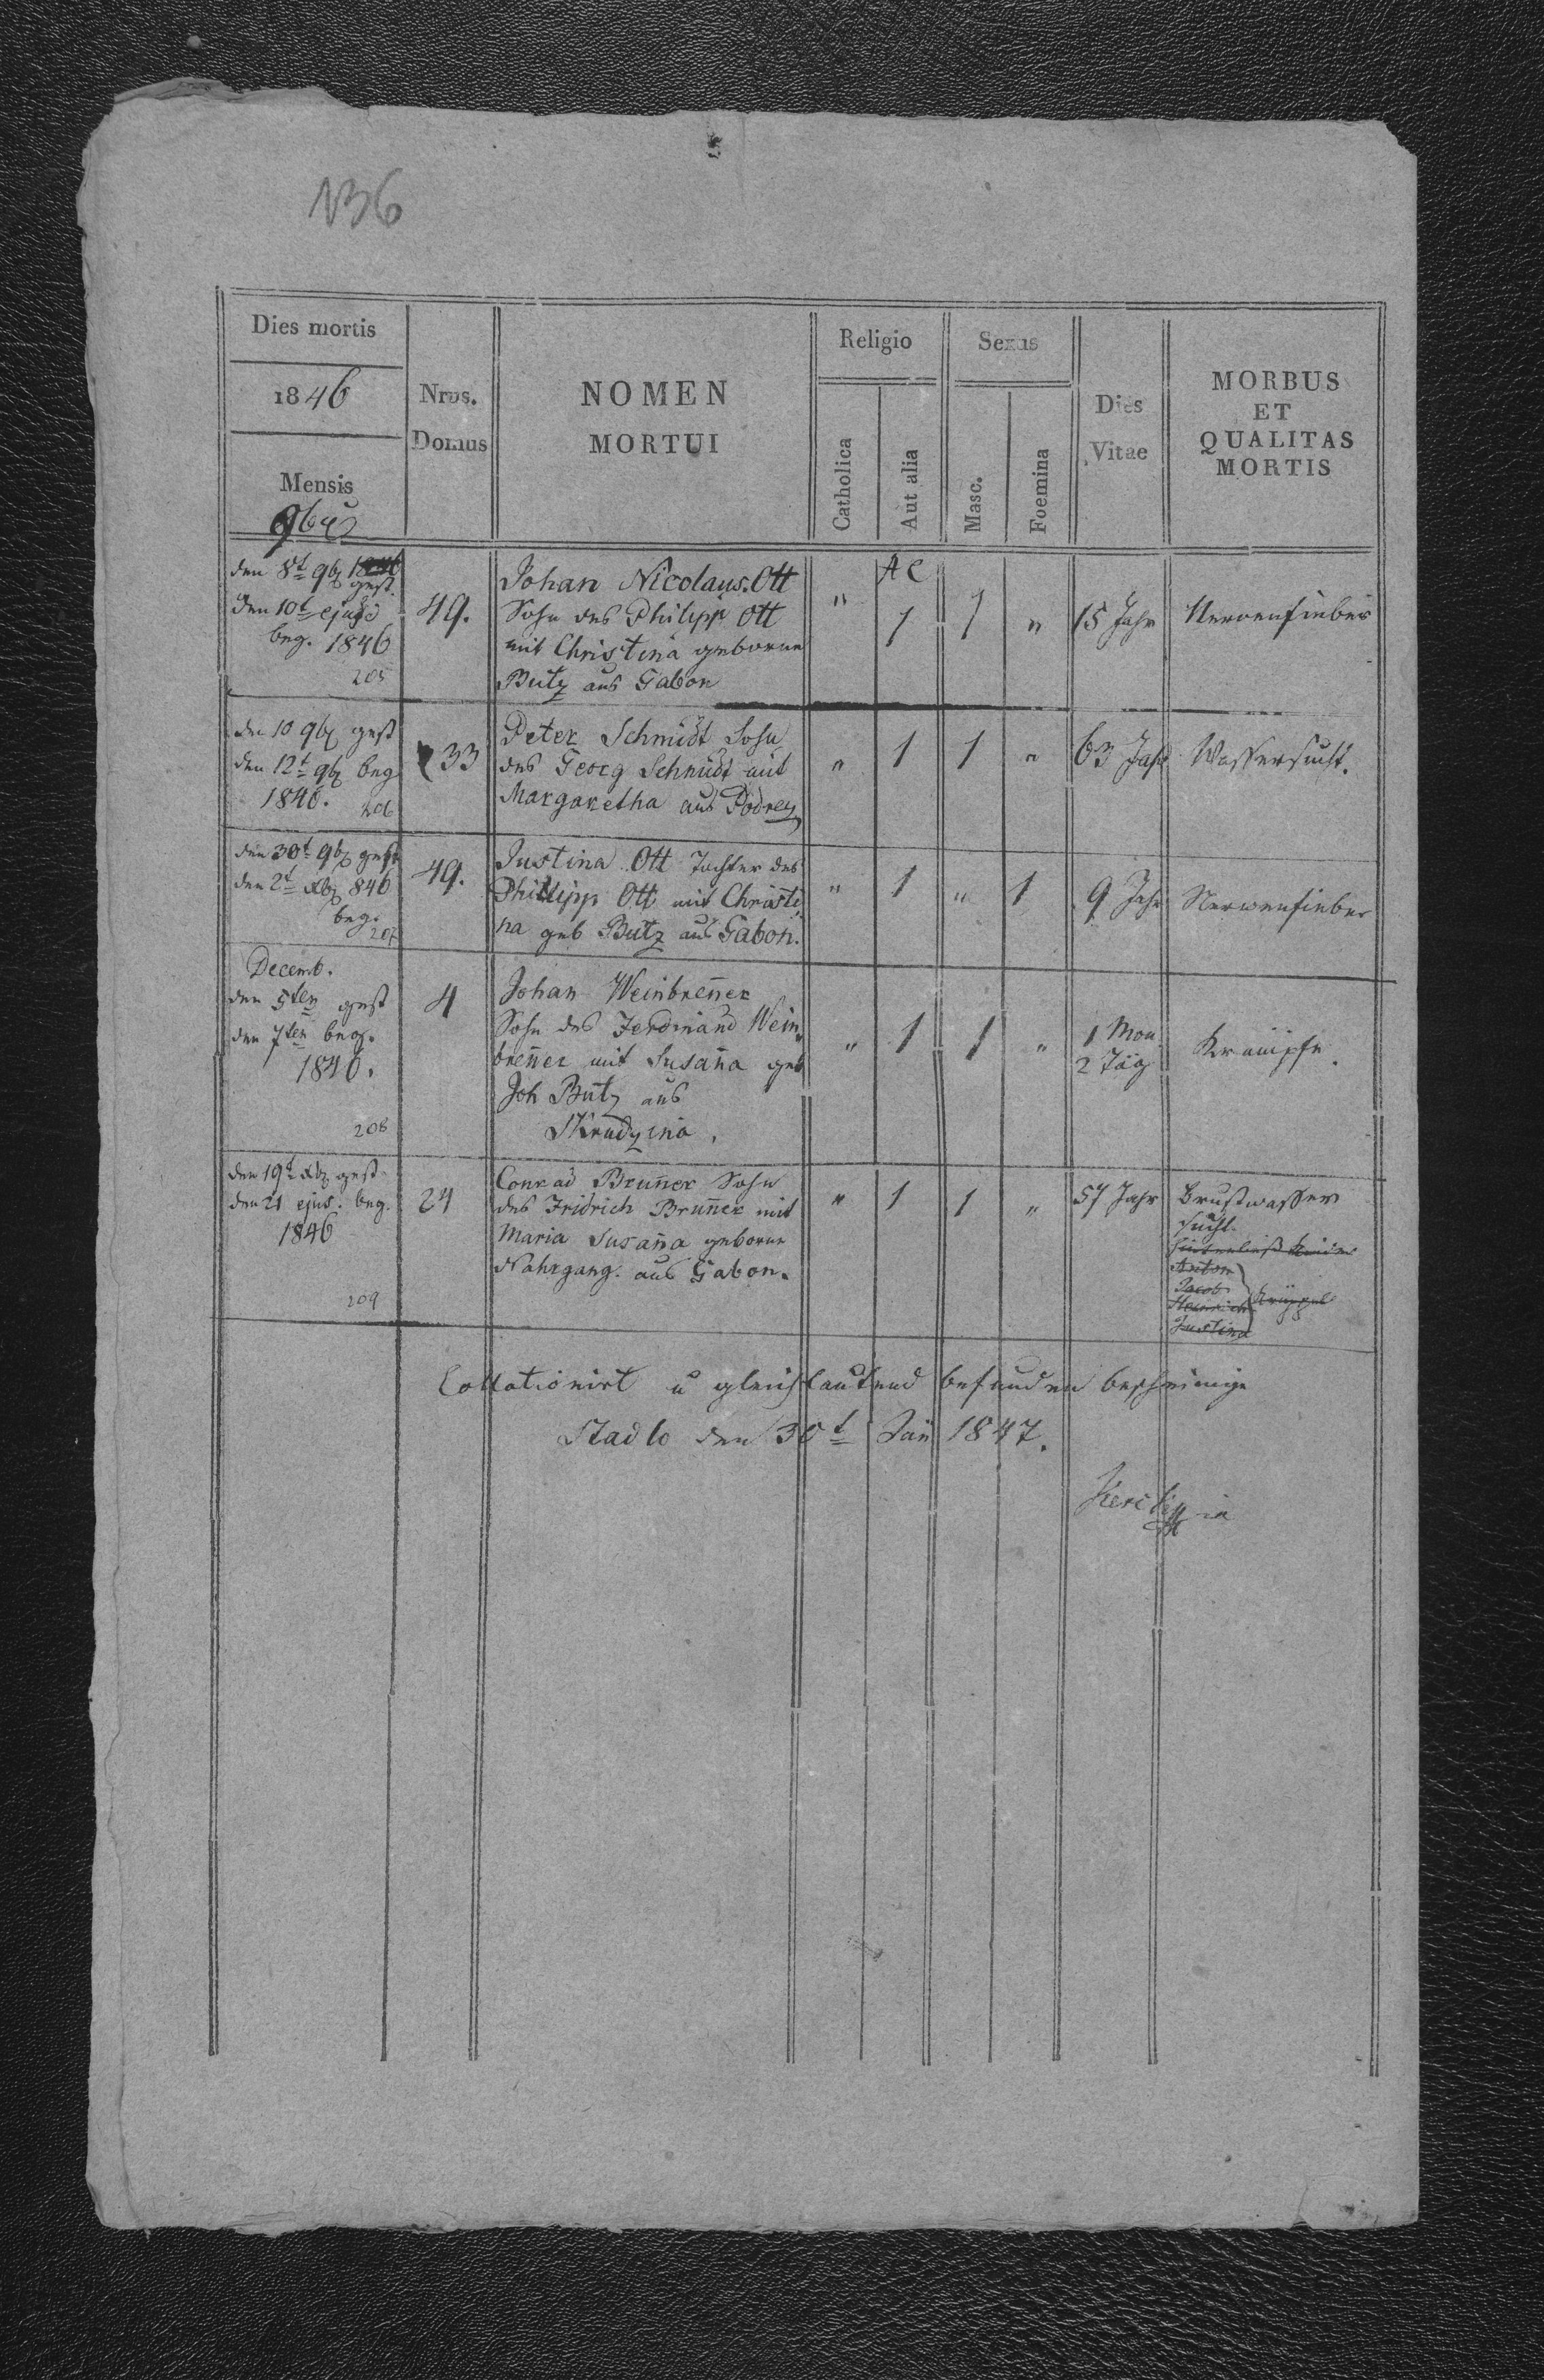 136
Dies mortis
1846
Mensis
9bris
Nrus.
Domus
NOMEN
MORTUI
Religio
Catholica
Aut alia
Sexus
Masc.
Foemina
Dies
Vitae
MORBUS
ET
QUALITAS
MORTIS
den 8t 9b
gest.
den 10t ejusd
beg. 1846
205
49.
Johan Nicolaus Ott
Sohn des Philipp Ott
mit Christina geborne
Butz aus Gabon
"
AC
1
1
"
15 Jahr
Nervenfieber
den 10 9b gest
den 12t 9b beg
1846.
206
33
Peter Schmidt Sohn
des Georg Schmidt mit
Margaretha aus Podrey
"
1
1
"
63 Jahr
Wassersucht.
den 30t 9b gest
den 2t Xb 846
beg.
207
49.
Justina Ott Tochter des
Phillipp Ott mit Christi
na geb Butz aus Gabon.
"
1
"
1
9 Jahr
Nervenfieber
Decemb.
den 5ten gest
den 7ten beg.
1846.
208
4
Johan Weinbrenner
Sohn des Ferdinand Wein
brenner mit Susanna geb
Joh Butz aus
"
1
1
"
1 Mon
2 Täg
Krämpfe.
den 19t Xb gest
den 21 ejus. beg.
1846
209
24
Conrad Brunner Sohn
des Fridrich Brunner mit
Maria Susanna geborne
Nahrgang. aus Gabon.
"
1
1
"
57 Jahr
Brustwasser
sucht
Anton
Jacob
Heinrich
Justina
Collationirt u gleichlautend befunden bescheinige
Stadlo den 30t Jän 1847.